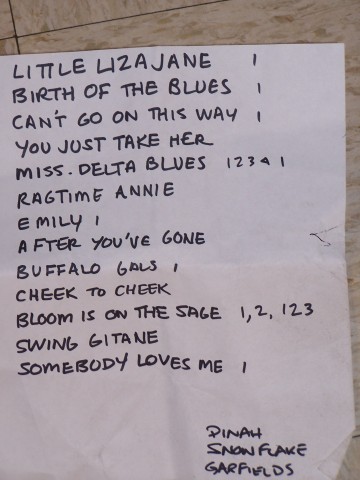 LITTLE LIZA JANE 1
BIRTH OF THE BLUES 1
CAN'T GO ON THIS WAY 1
YOU JUST TAKE HER
MISS. DELTA BLUES 1234 1
RAGTIME ANNIE
EMILY 1
AFTER YOU'VE GONE
BUFFALO GALS 1
CHEEK TO CHEEK
BLOOM IS ON THE SAGE 1, 2, 123
SWING GITANE
SOMEBODY LOVES ME 1
DINAH
SNOWFLAKE
GARFIELDS